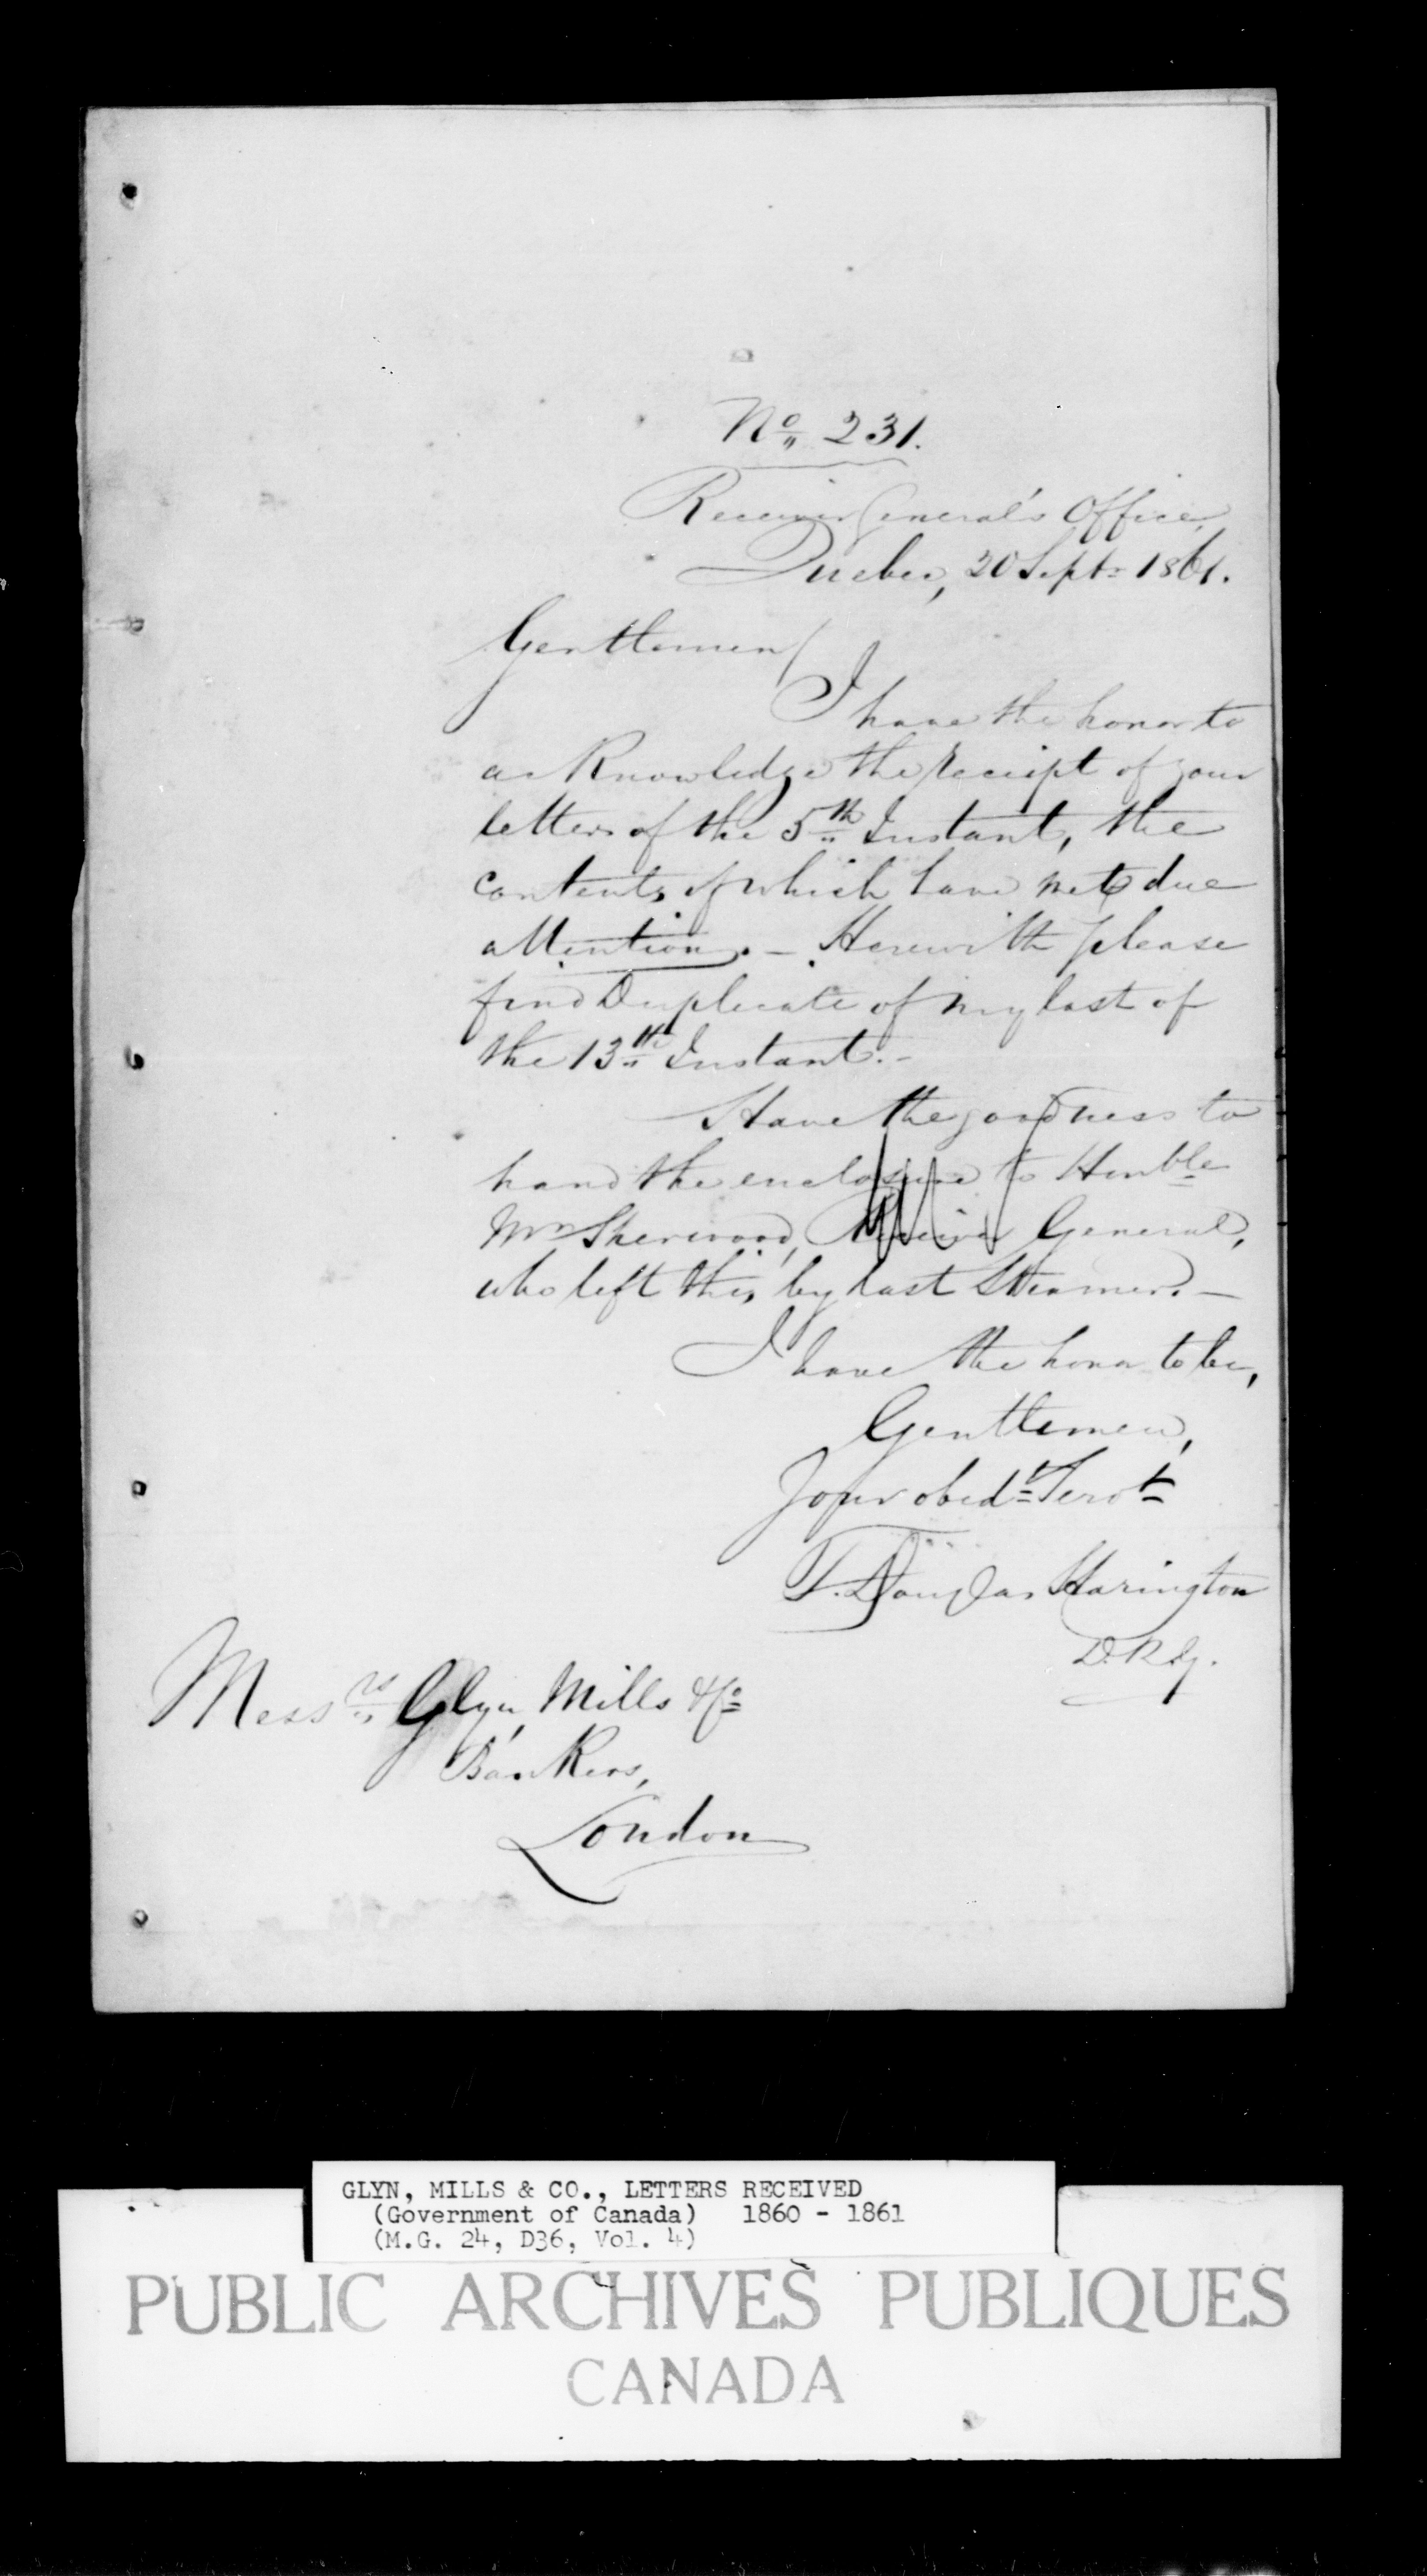 No. 231.
Receiver General's Office,
Quebec, 20 Sept. 1861.
Gentlemen/
I have the honor to
acknowledge the receipt of your
letter of the 5th Instant, the
contents of which have met due
attention. – Herewith please
find Duplicate of my last of
the 13th Instant. –
Have the goodness to
hand the enclosure to Honble
Mr Sherwood, Receiver General,
who left this by last Steamer. –
I have the honor to be,
Gentlemen,
Your obedt Servt
T. Douglas Harington
D.R.G.
Messrs Glyn, Mills & Co
Bankers,
London
GLYN, MILLS & CO., LETTERS RECEIVED
(Government of Canada) 1860 - 1861
(M.G. 24, D36, Vol. 4)
PUBLIC ARCHIVES PUBLIQUES
CANADA